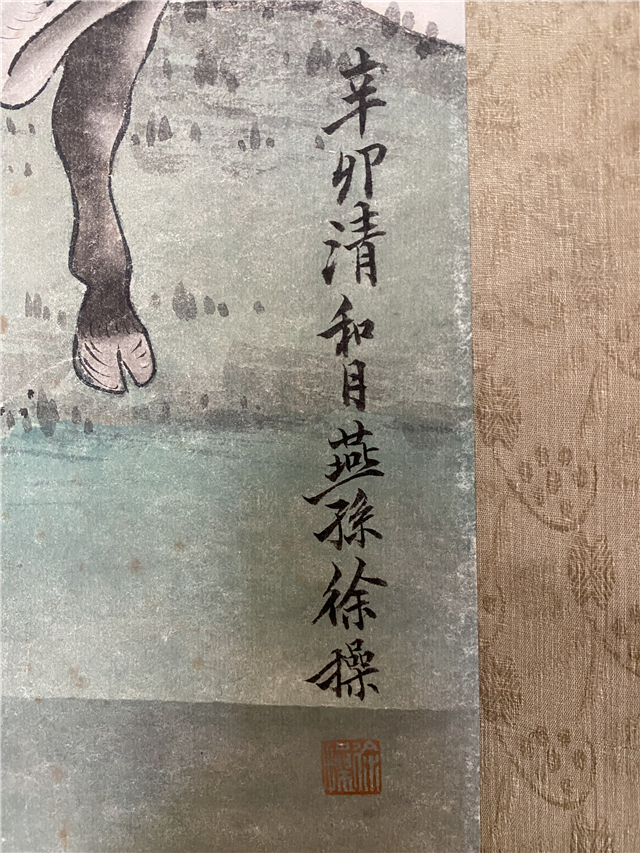 辛卯清和月燕孫徐操
徐操